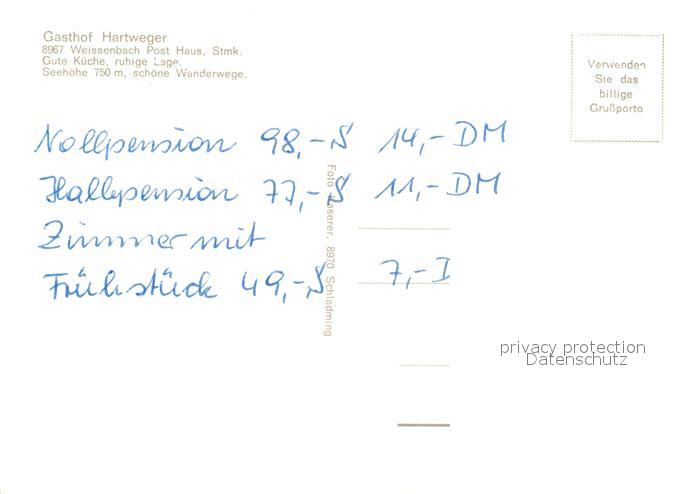 Gasthof Hartweger
8967 Weissenbach Post Haus, Stmk.
Gute Küche, ruhige Lage.
Seehöhe 750 m, schöne Wanderwege.
Verwenden
Sie das
billige
Grußporto
Vollpension 98,-S 14,- DM
Halbpension 77,-S 11,- DM
Zimmer mit
Frühstück 49,-S 7,-
8970 Schladming
privacy protection
Datenschutz